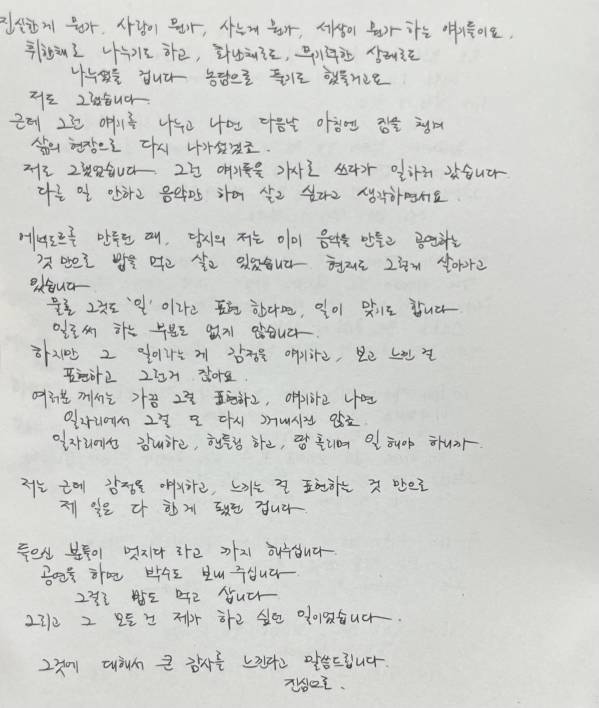 진실한게 뭔가, 사랑이 뭔가, 사는게 뭔가, 세상이 뭔가 하는 얘기들이요.
취한채로 나누기도 하고, 화난채로, 무기력한 상태로
나누셨을 겁니다 농담으로 풀기도 했을거고요
저도 그랬습니다.
근데 그런 얘기를 나누고 나면 다음날 아침엔 짐을 챙겨
삶의 현장으로 다시 나가셨겠죠.
저도 그랬었습니다. 그런 얘기들을 가사로 쓰다가 일하러 갔습니다
다른 일 안하고 음악만 하며 살고 싶다고 생각하면서요.
에넥도트를 만들던 때, 당시의 저는 이미 음악을 만들고 공연하는
것 만으로 밥을 먹고 살고 있었습니다. 현재도 그렇게 살아가고
있습니다
물론 그것도 '일' 이라고 표현 한다면, 일이 맞기도 합니다
일로써 하는 부분도 없지 않습니다.
하지만 그 일이라는 게 감정을 얘기하고, 보고 느낀 걸
표현하고 그런거 잖아요.
여러분 께서는 가끔 그걸 표현하고, 얘기하고 나면
일자리에서 그걸 또 다시 꺼내시진 않죠
일자리에선 감내하고, 핸들링 하고, 땀 흘리며 일 해야 하니까.
저는 근데 감정을 얘기하고, 느끼는 걸 표현하는 것 만으로
제 일은 다 한게 됐던 겁니다
들으신 분들이 멋지다 라고 까지 해주십니다
공연을 하면 박수도 보내 주십니다
그걸로 밥도 먹고 삽니다
그리고 그 모든 건 제가 하고 싶던 일이었습니다.
그것에 대해서 큰 감사를 느낀다고 말씀드립니다.
진심으로.